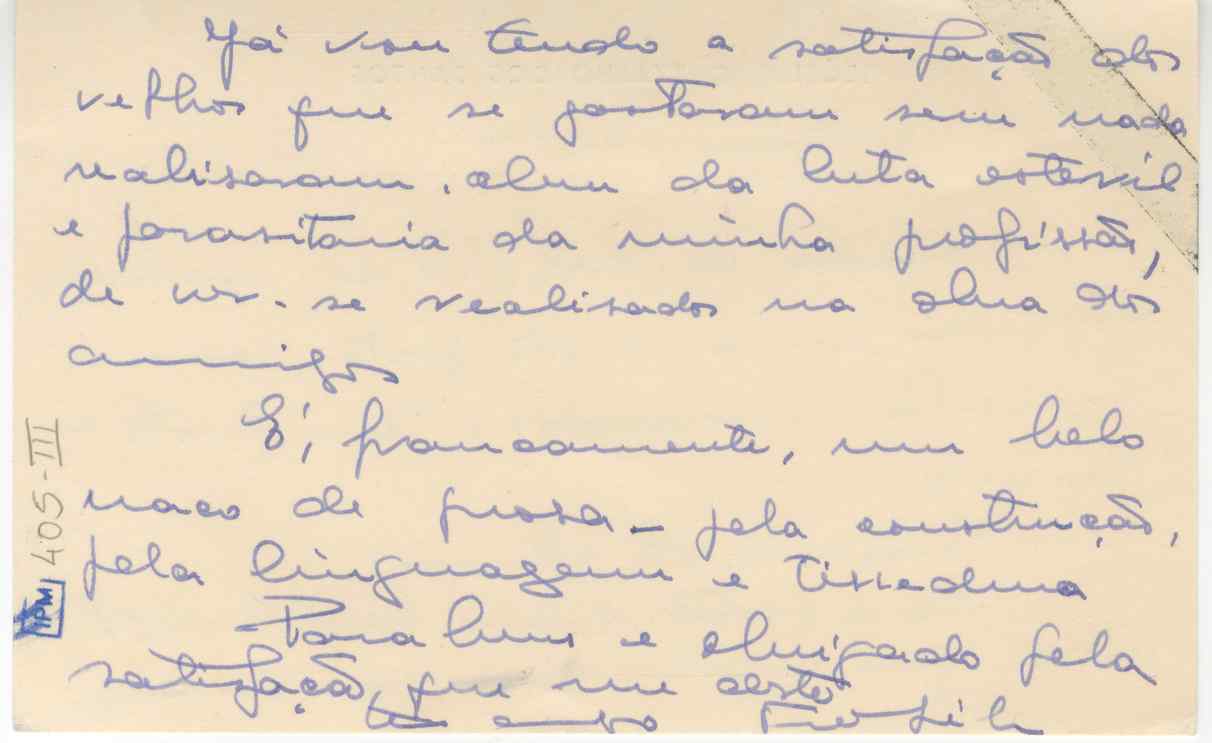 Já vou tendo a satisfação dos
velhos que se gastaram sem nada
realisaram, alem da luta esteril
e parasitaria da minha profissão,
de ver-se realisados na obra dos
amigos
É, francamente, um belo
naco de prosa – pela construção,
pela linguagem e tissedura
Parabens e obrigado pela
satisfação, que me deste
405-III
IPM